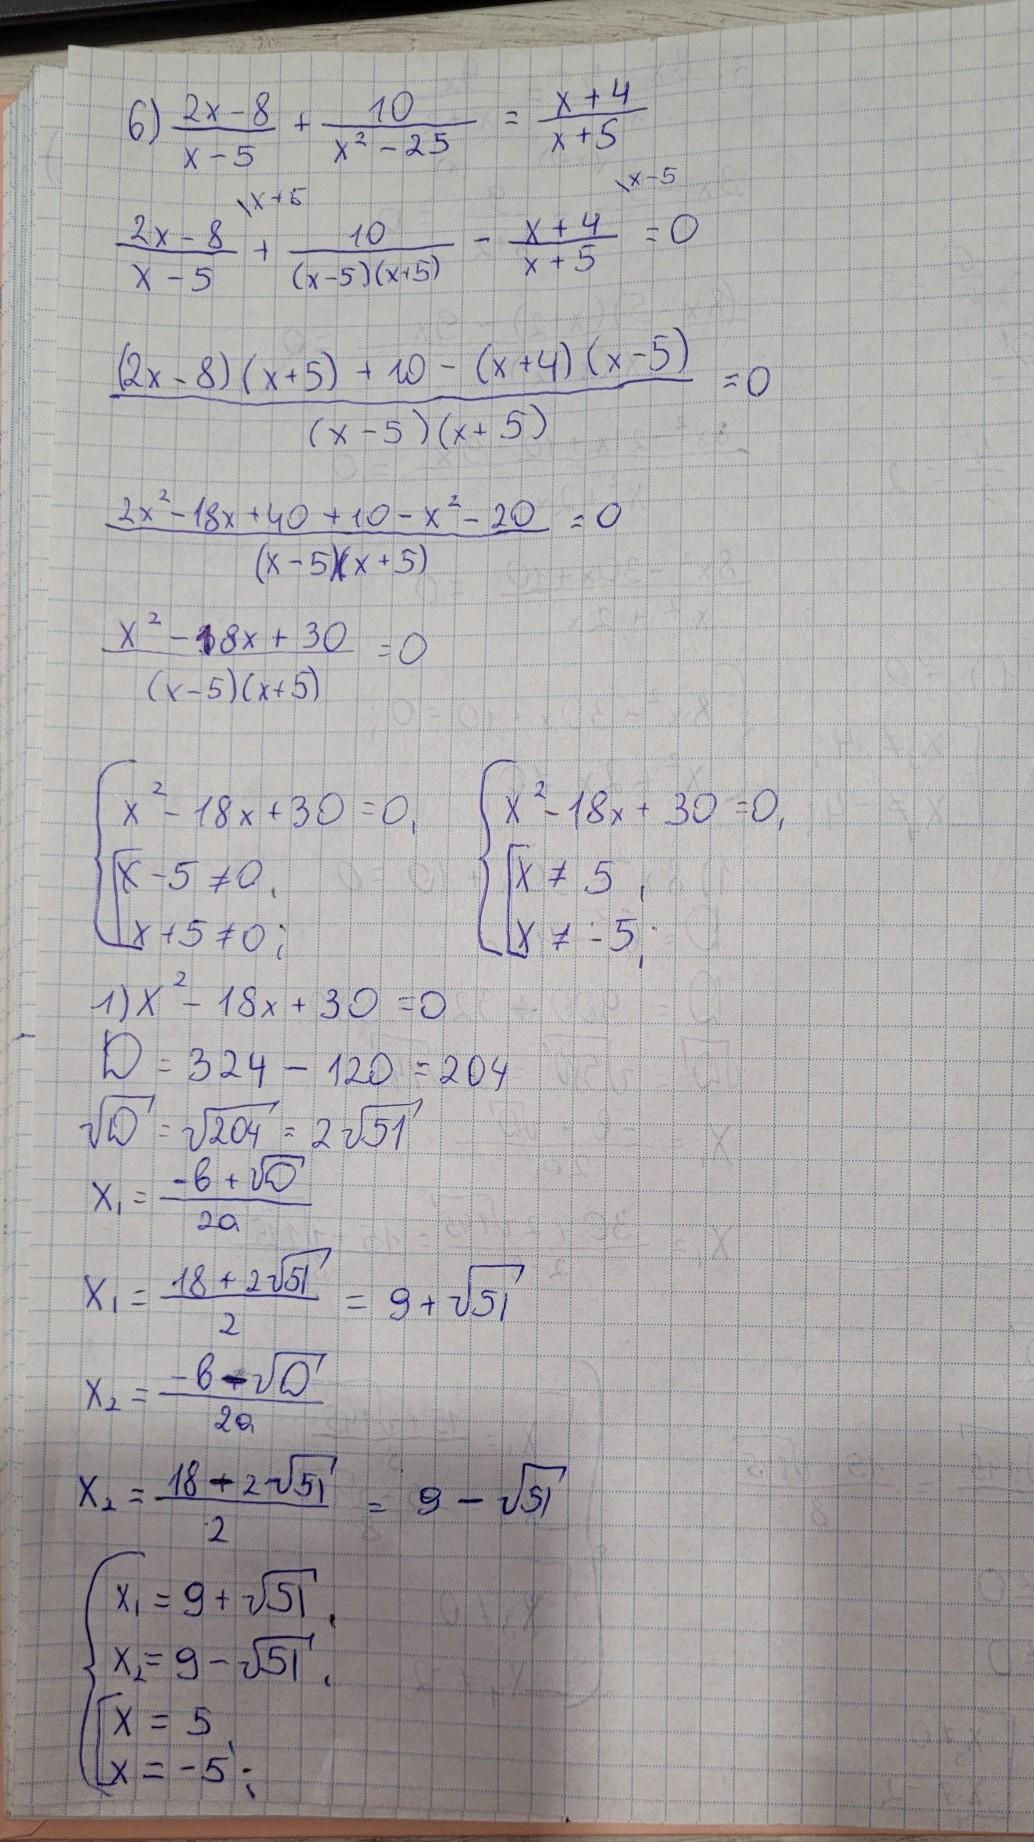 6) (2x-8)/(x-5) + 10/(x²-25) = (x+4)/(x+5)
(2x-8)/(x-5) \x+5 + 10/((x-5)(x+5)) - (x+4)/(x+5) \x-5 = 0
((2x-8)(x+5)+10-(x+4)(x-5))/((x-5)(x+5)) = 0
(2x²-18x+40+10-x²-20)/((x-5)(x+5)) = 0
(x²-18x+30)/((x-5)(x+5)) = 0
{ x²-18x+30=0, { x²-18x+30=0,
[ x-5≠0, [ x≠5,
x+5≠0; x≠-5;
1) x²-18x+30=0
D = 324 - 120 = 204
√D = √204 = 2√51
x₁ = (-b+√D)/2a
x₁ = (18+2√51)/2 = 9+√51
x₂ = (-b-√D)/2a
x₂ = (18-2√51)/2 = 9-√51
{ x₁ = 9+√51,
x₂ = 9-√51,
[ x = 5,
x = -5;